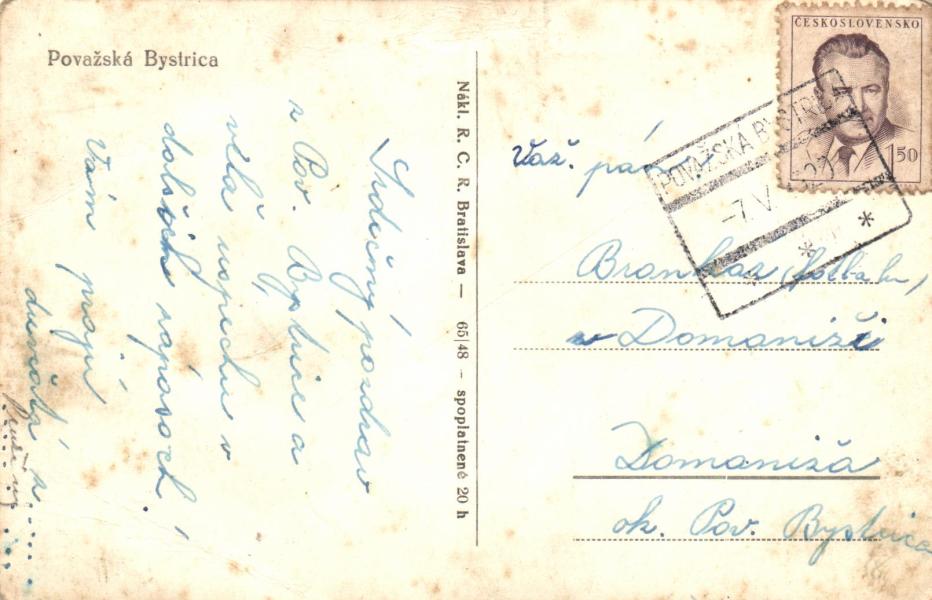 Považská Bystrica
Srdečný pozdrav
z Pov. Bystrice a
veľa úspechu v
dalších zápasoch!
Vám prajú
Nákl. R. C. R. Bratislava — 65/48 – spoplatnené 20 h
ČESKOSLOVENSKO
1 50
POVAŽSKÁ BYSTRICA
-7. V.
* *
Váž. pán
Brankár (fotbalu)
v Domaniži
Domaniža
ok. Pov. Bystrica